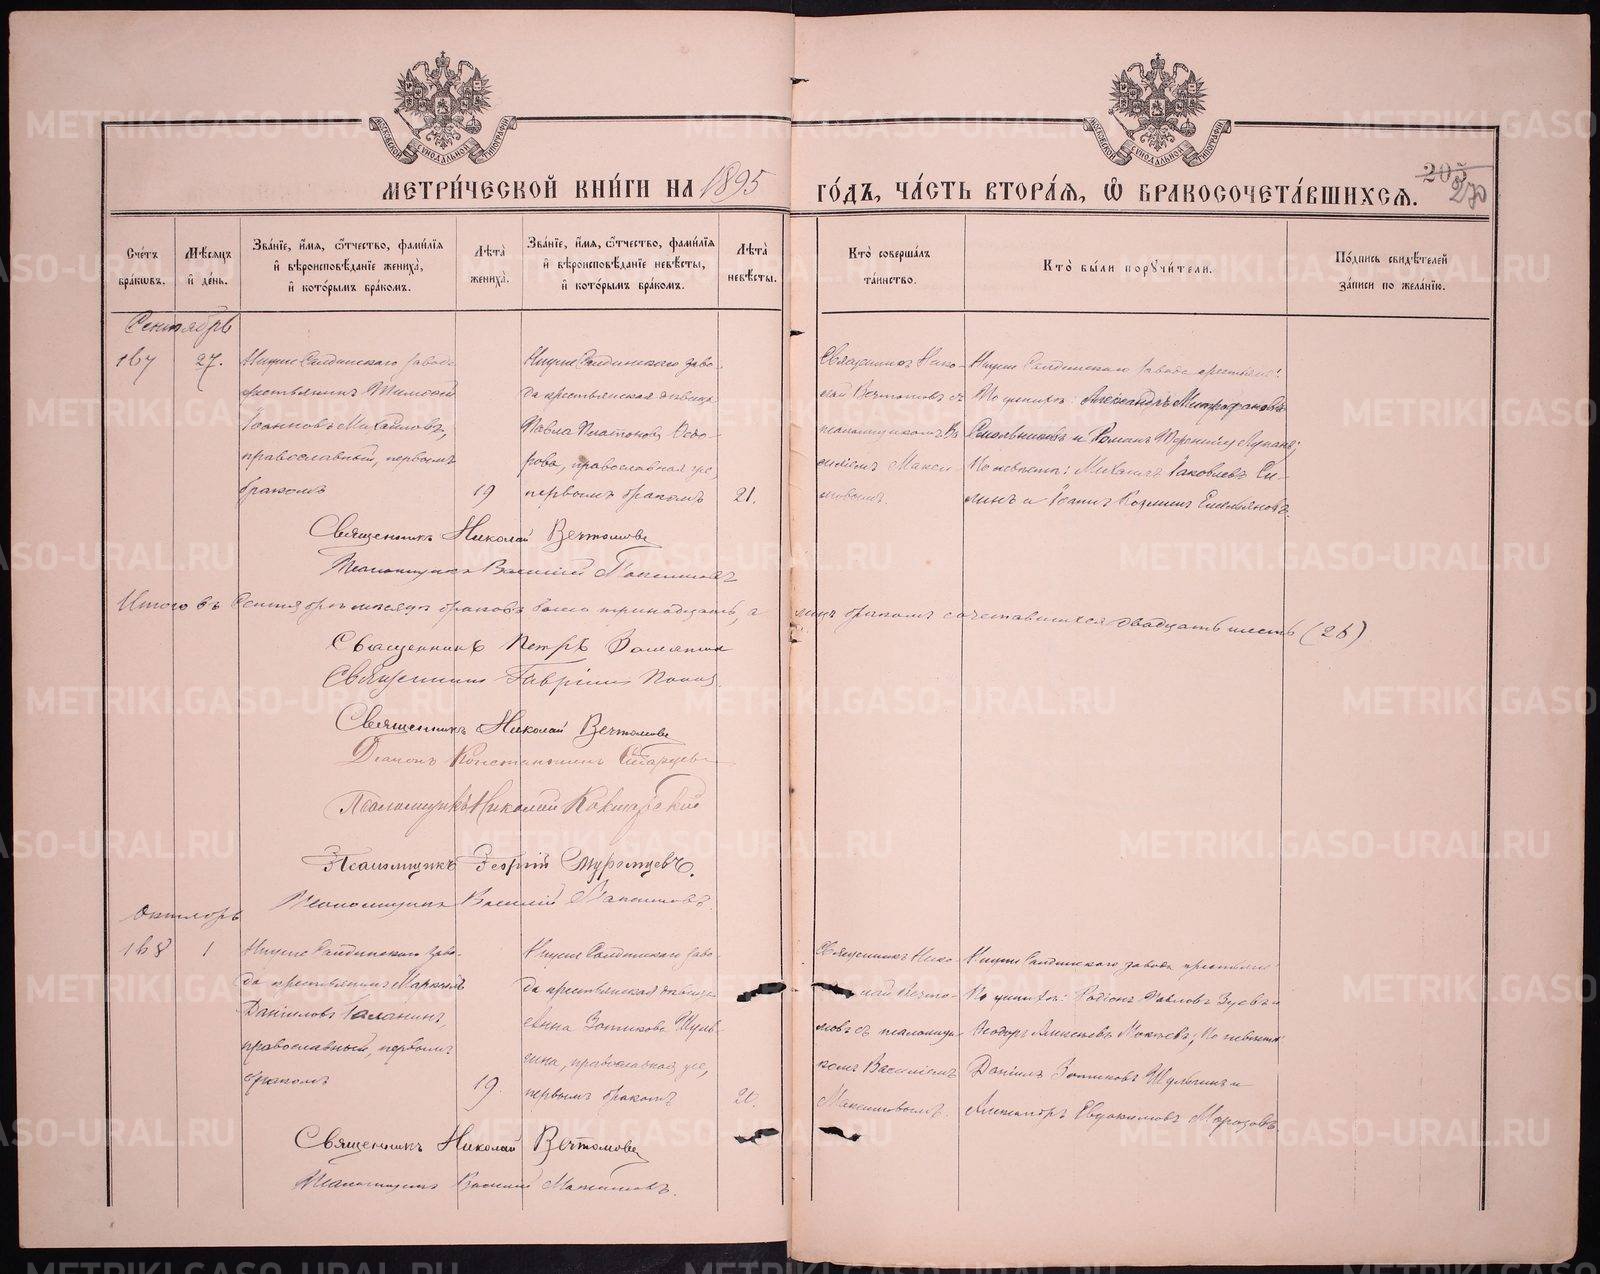 МОСКОВСКОЙ СѴНОДАЛЬНОЙ ТИПОГРАФІИ
МОСКОВСКОЙ СѴНОДАЛЬНОЙ ТИПОГРАФІИ
МЕТРИ́ЧЕСКОЙ КНИ́ГИ НА 1895
ГО́ДЪ, ЧА́СТЬ ВТОРА́Я, Ѽ БРАКОСОЧЕТА́ВШИХСЯ.
205
270
Сче́тъ бра́ковъ.
Мѣ́сяцъ и́ де́нь.
Зва́нїе, и́мя, ѻ҆́тчество, фами́лїя и́ вѣроисповѣ́данїе жениха̀, и́ кото́рымъ бра́комъ.
Лѣ́та̀ жениха̀.
Зва́нїе, и́мя, ѻ҆́тчество, фами́лїя и́ вѣроисповѣ́данїе невѣ́сты, и́ кото́рымъ бра́комъ.
Лѣ́та̀ невѣ́сты.
Кто̀ соверша́лъ та́инство.
Кто̀ бы́ли порꙋчи́тели.
По́дпись свидѣ́телей за́писи по жела́нїю.
Сентябрь
167
27.
Нижне Салдинскаго завода
крестьянинъ Тимофей
Іоанновъ Михайловъ,
православный, первымъ
бракомъ
19
Нижне Салдинскаго заво-
да крестьянская дѣвица
Павла Платонова Ѳедо-
рова, православная же,
первымъ бракомъ
21.
Священникъ Нико-
лай Вечтомовъ съ
псаломщикомъ Ва
силіемъ Макси-
мовымъ.
Нижне Салдинскаго завода крестьяне:
По женихѣ: Александръ Митрофановъ
и Романъ
По невѣстѣ: Михаилъ Іаковлевъ
и Іоаннъ Емельяновъ.
Священникъ Николай Вечтомовъ
Псаломщикъ Василій Максимовъ
Итого въ Сентябрѣ мѣсяцѣ браковъ было тринадцать, а
лицъ бракомъ сочетавшихся двадцать шесть (26)
Священникъ Петръ
Священникъ Гавріилъ Поповъ
Священникъ Николай Вечтомовъ
Діаконъ Константинъ Старцевъ
Псаломщикъ Николай
Псаломщикъ Георгій
Псаломщикъ Василій Максимовъ.
Октябрь
168
1
Нижне Салдинскаго заво-
да крестьянинъ
Даніиловъ Галанинъ,
православный, первымъ
бракомъ
19
Нижне Салдинскаго заво-
да крестьянская дѣвица
Анна Зотикова Шуль-
гина, православная же,
первымъ бракомъ
20.
Священникъ Нико-
лай Вечто-
мовъ съ псаломщи
комъ Василіемъ
Максимовымъ.
Нижне Салдинскаго завода крестьяне:
По женихѣ: Родіонъ Павловъ Зуевъ и
Ѳеодоръ Алексѣевъ; По невѣстѣ:
Даніилъ Зотиковъ Шульгинъ и
Александръ Евдокимовъ Морозовъ.
Священникъ Николай Вечтомовъ
Псаломщикъ Василій Максимовъ.
METRIKI.GASO-URAL.RU